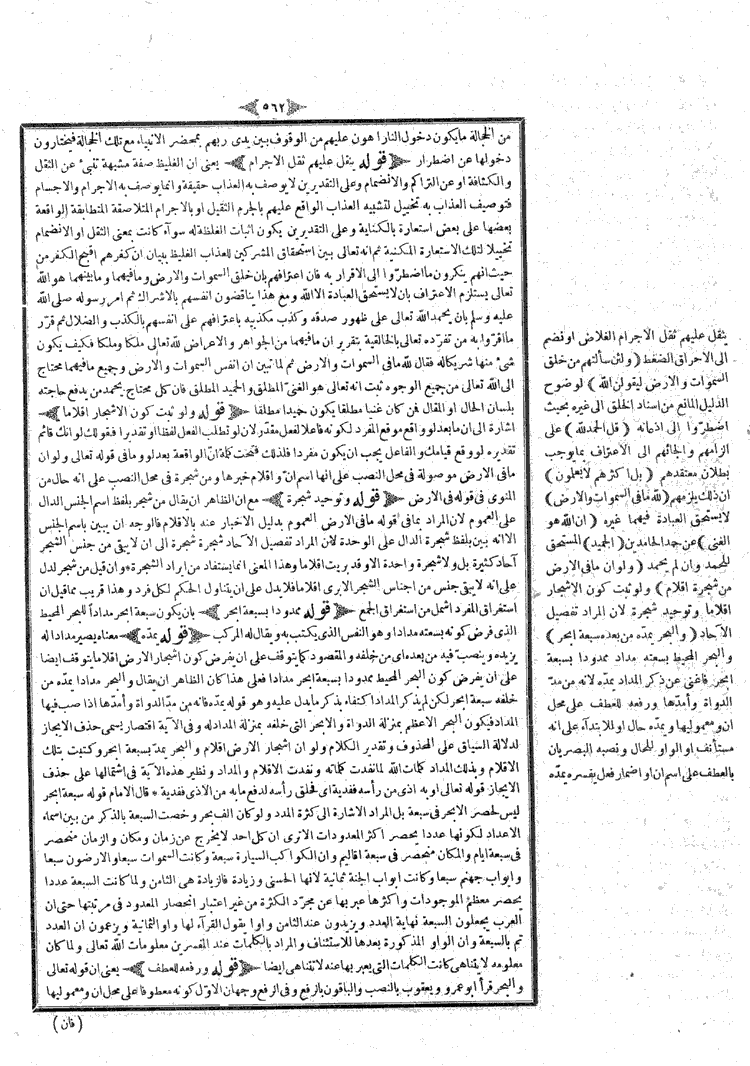 ﴿٥٦٢﴾
من الخجالة ما يكون دخول النار اهون عليهم من الوقوف بين يدى ربهم بمحضر الانبياء مع تلك الخجالة فيختارون
دخولها عن اضطرار ﴿قوله يثقل عليهم ثقل الاجرام﴾ يعنى ان الغليظ صفة مشبهة تنبئ عن الثقل
والكثافة او عن التراكم والانضمام وعلى التقديرين لا يوصف به العذاب حقيقة وانما يوصف به الاجرام والاجسام
فتوصيف العذاب به تخييل لتشبيه العذاب الواقع عليهم بالجرم الثقيل او بالاجرام المتلاصقة المتطابقة الواقعة
بعضها على بعض استعارة بالكناية وعلى التقديرين يكون اثبات الغلظة له سوآء كانت بمعنى الثقل او الانضمام
تخييلا لتلك الاستعارة المكنية ثم انه تعالى بين استحقاق المشركين للعذاب الغليظ ببيان ان كفرهم اقبح الكفر من
حيث انهم ينكرون ما اضطروا الى الاقرار به فان اعترافهم بان خلق السموات والارض وما فيهما وما بينهما هو الله
تعالى يستلزم الاعتراف بان لا يستحق العبادة الا الله ومع هذا يناقضون انفسهم بالاشراك ثم امر رسوله صلى الله
عليه وسلم بان يحمد الله تعالى على ظهور صدقه وكذب مكذبيه باعترافهم على انفسهم بالكذب والضلال ثم قرر
ما اقروا به من تفرده تعالى بالخالقية بتقرير ان ما فيهما من الجواهر والاعراض لله تعالى ملكا وملكا فكيف يكون
شئ منها شريكا له فقال لله ما فى السموات والارض ثم لما تبين ان انفس السموات والارض وجميع ما فيهما محتاج
الى الله تعالى من جميع الوجوه ثبت انه تعالى هو الغنى المطلق والحميد المطلق فان كل محتاج يحمد من يدفع حاجته
بلسان الحال او المقال فمن كان غنيا مطلقا يكون حميدا مطلقا ﴿قوله ولو ثبت كون الاشجار اقلاما﴾
اشارة الى ان ما بعد لو واقع موقع المفرد لكونه فاعلا لفعل مقدر لان لو تطلب الفعل لفظا او تقديرا فقولك لو انك قائم
تقديره لو وقع قيامك والفاعل يجب ان يكون مفردا فلذلك فتحت كلمة ان الواقعة بعد لو وما فى قوله تعالى ولو ان
ما فى الارض موصولة فى محل النصب على انها اسم ان واقلام خبرها ومن شجرة فى محل النصب على انه حال من
المنوى فى قوله فى الارض ﴿قوله وتوحيد شجرة﴾ مع ان الظاهر ان يقال من شجر بلفظ اسم الجنس الدال
على العموم لان المراد بما فى قوله ما فى الارض العموم بدليل الاخبار عنه بالاقلام فالوجه ان يبين باسم الجنس
الا انه بين بلفظ شجرة الدال على الوحدة لان المراد تفصيل الآحاد شجرة شجرة الى ان لا يبقى من جنس الشجر
آحاد كثيرة بل ولا شجرة واحدة الا وقد بريت اقلاما وهذا المعنى انما يستفاد من ايراد الشجرة * وان قيل من شجر لدل
على انه لا يبقى جنس من اجناس الشجر الا برى اقلاما فلا يدل على ان يتناول الحكم لكل فرد وهذا قريب مما قيل ان
استغراق المفرد اشمل من استغراق الجمع ﴿قوله ممدودا بسبعة ابحر﴾ بان يكون سبعة ابحر مدادا للبحر المحيط
الذى فرض كونه بسعته مدادا وهو النقس الذى يكتب به ويقال له المركب ﴿قوله يمده﴾ معناه يصير مدادا له
يزيده وينصب فيه من بعده اى من خلفه والمقصود كما يتوقف على ان يفرض كون اشجار الارض اقلاما يتوقف ايضا
على ان يفرض كون البحر المحيط ممدودا بسبعة ابحر مدادا فعلى هذا كان الظاهر ان يقال والبحر مدادا يمده من
خلفه سبعة ابحر لكن لم يذكر المداد اكتفاء بذكر ما يدل عليه وهو قوله يمده فانه من مد الدواة وأمدها اذا صب فيها
المداد فيكون البحر الاعظم بمنزلة الدواة والابحر التى خلفه بمنزلة المداد له وفى الآية اقتصار يسمى حذف الايجاز
لدلالة السياق على المحذوف وتقدير الكلام ولو ان اشجار الارض اقلام والبحر يمد بسبعة ابحر وكتبت بتلك
الاقلام وبذلك المداد كلمات الله لما نفدت كلماته ونفدت الاقلام والمداد ونظير هذه الآية فى اشتمالها على حذف
الايجاز قوله تعالى او به اذى من رأسه ففدية اى فحلق رأسه لدفع ما به من الاذى ففدية * قال الامام قوله سبعة ابحر
ليس لحصر الابحر فى سبعة بل المراد الاشارة الى كثرة المدد ولو كان الف بحر وخصت السبعة بالذكر من بين اسماء
الاعداد لكونها عددا يحصر اكثر المعدودات الا ترى ان كل احد لا يخرج عن زمان ومكان والزمان منحصر
فى سبعة ايام والمكان منحصر فى سبعة اقاليم وان الكواكب السيارة سبعة وكانت السموات سبعا والارضون سبعا
وابواب جهنم سبعا وكانت ابواب الجنة ثمانية لانها الحسنى وزيادة فالزيادة هى الثامن ولما كانت السبعة عددا
يحصر معظم الموجودات واكثرها عبر بها عن مجرد الكثرة من غير اعتبار انحصار المعدود فى مرتبتها حتى ان
العرب يجعلون السبعة نهاية العدد ويزيدون عند الثامن واوا يقول القرآء لها واو الثمانية ويزعمون ان العدد
تم بالسبعة وان الواو المذكورة بعدها للاستئناف والمراد بالكلمات عند المفسرين معلومات الله تعالى ولما كان
معلومه لا يتناهى كانت الكلمات التى يعبر بها عنه لا تتناهى ايضا ﴿قوله ورفعه للعطف﴾ يعنى ان قوله تعالى
والبحر قرأ ابو عمرو ويعقوب بالنصب والباقون بالرفع وفى الرفع وجهان الاول كونه معطوفا على محل ان ومعموليها
(فان)
يثقل عليهم ثقل الاجرام الغلاض او نضم
الى الاحراق الضغط (ولئن سألتهم من خلق
السموات والارض ليقولن الله) لوضوح
الدليل المانع من اسناد الخلق الى غيره بحيث
اضطروا الى اذعانه (قل الحمد لله) على
الزامهم والجائهم الى الاعتراف بما يوجب
بطلان معتقدهم (بل اكثرهم لا يعلمون)
ان ذلك يلزمهم (لله ما فى السموات والارض)
لا يستحق العبادة فيهما غيره (ان الله هو
الغنى) عن حمد الحامدين (الحميد) المستحق
للحمد وان لم يحمد (ولو ان ما فى الارض
من شجرة اقلام) ولو ثبت كون الاشجار
اقلاما وتوحيد شجرة لان المراد تفصيل
الآحاد (والبحر يمده من بعده سبعة ابحر)
والبحر المحيط بسعته مداد ممدودا بسبعة
ابحر فاغنى عن ذكر المداد يمده لانه من مد
الدواة وأمدها ورفعه للعطف على محل
ان ومعموليها ويمده حال او للابتدآء على انه
مستأنف او الواو للحال ونصبه البصريان
بالعطف على اسم ان او اضمار فعل يفسره يمده